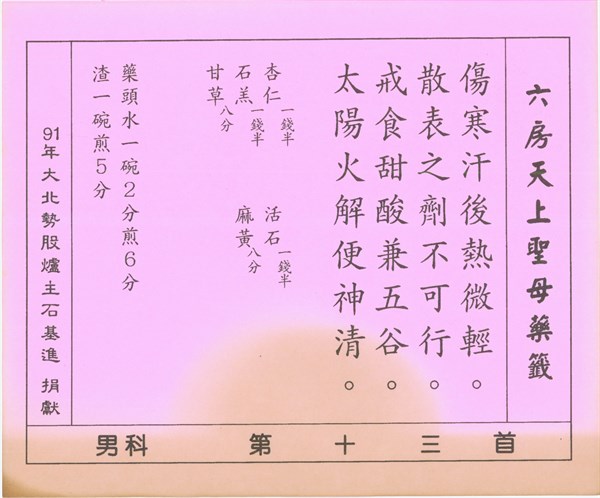 六房天上聖母藥籤
傷寒汗後熱微輕。
散表之劑不可行。
戒食甜酸兼五谷。
太陽火解便神清。
杏仁一錢半 活石一錢半
石羔一錢半 麻黃八分
甘草八分
藥頭水一碗2分煎6分
渣一碗煎5分
91年大北勢股爐主石基進 捐獻
男科 第十三首